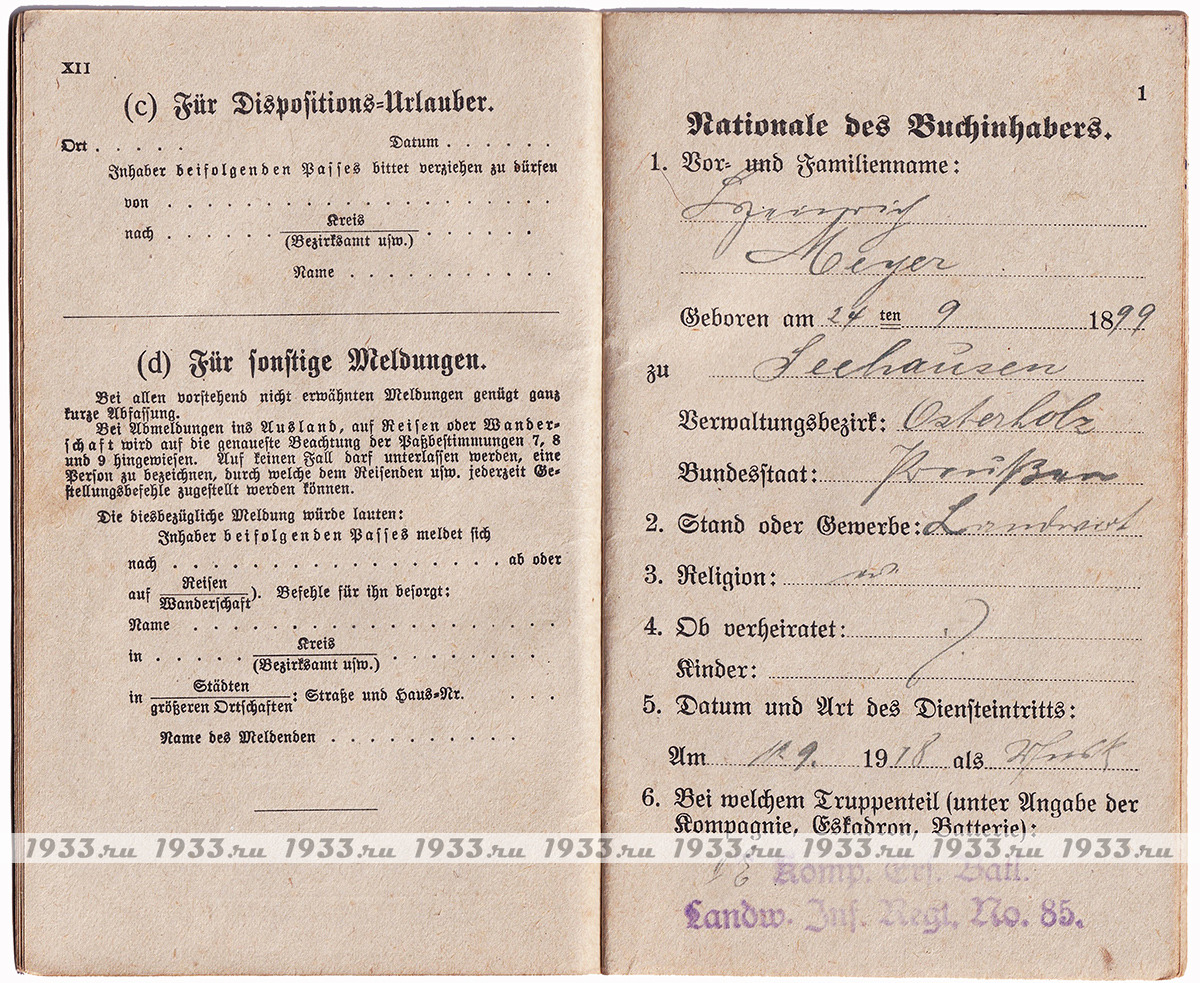 XII
(c) Für Dispositions-Urlauber.
Ort . . . . . Datum . . . . . .
Inhaber beifolgenden Passes bittet verziehen zu dürfen
von . . . . . . . . . . . . . . . . . . .
nach . . . . . . Kreis . . . . . .
(Bezirksamt usw.)
Name . . . . . . . . . . .
(d) Für sonstige Meldungen.
Bei allen vorstehend nicht erwähnten Meldungen genügt ganz
kurze Abfassung.
Bei Abmeldungen ins Ausland, auf Reisen oder Wander-
schaft wird auf die genaueste Beachtung der Paßbestimmungen 7, 8
und 9 hingewiesen. Auf keinen Fall darf unterlassen werden, eine
Person zu bezeichnen, durch welche dem Reisenden usw. jederzeit Ge-
stellungsbefehle zugestellt werden können.
Die diesbezügliche Meldung würde lauten:
Inhaber beifolgenden Passes meldet sich
nach . . . . . . . . . . . . . . . . . ab oder
auf Reisen
Wanderschaft). Befehle für ihn besorgt:
Name . . . . . . . . . . . . . . . . . .
in . . . . . Kreis . . . . . . . .
(Bezirksamt usw.)
in Städten
größeren Ortschaften: Straße und Haus-Nr. . . .
Name des Meldenden . . . . . . . . . .
1
Nationale des Buchinhabers.
1. Vor- und Familienname:
Heinrich
Meyer
Geboren am 24 ten 9 1899
zu Seehausen
Verwaltungsbezirk: Osterholz
Bundesstaat: Preußen
2. Stand oder Gewerbe: Landwirt
3. Religion:
4. Ob verheiratet:
Kinder:
5. Datum und Art des Diensteintritts:
Am 9. 1918 als
6. Bei welchem Truppenteil (unter Angabe der
Kompagnie, Eskadron, Batterie):
1933.ru 1933.ru 1933.ru 1933.ru 1933.ru 1933.ru 1933.ru 1933.ru 1933.ru
Komp. Ers. Batl.
Landw. Inf. Regt. No. 85.